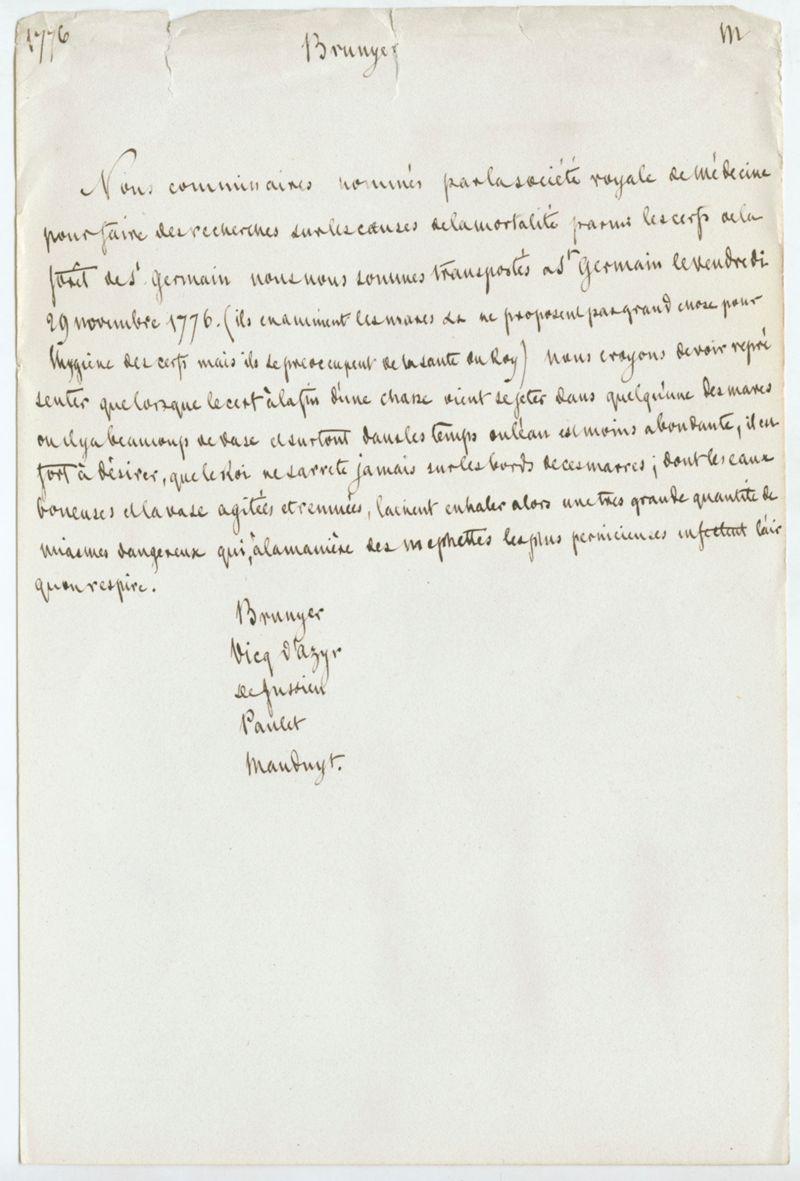 1776 Brunyer M
Nous commissaires nommés par la société royale de Médecine
pour faire des recherches sur les causes de la mortalité parmi les cerfs de la
forêt de St Germain nous nous sommes transportés a St Germain le vendredi
29 novembre 1776. (ils examinent les mares &a ne proposent pas grand chose pour
l'hygiène des cerfs mais ils se préoccupent de la santé du Roy) nous croyons devoir repré
senter que lorsque le cerf à la fin d'une chasse vient se jeter dans quelqu'une des mares
ou il y a beaucoup de vase et surtout dans les temps ou l'eau est moins abondante, il est
fort à désirer, que le Roi ne s'arrete jamais sur les bords de ces marres; dont les eaux
boueuses et la vase agitées et remuées, laissent exhaler alors une très grande quantité de
miasmes dangereux qui, à la manière des mephettes les plus pernicieuses infectent l'air
qu'on respire.
Brunyer
Vicq d'azyr
de Jussieu
Paulet
Mauduyt.